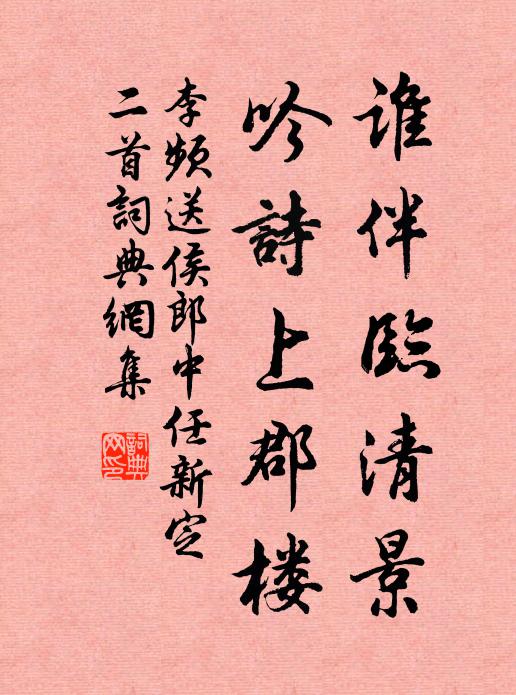 誰伴臨清景
吟詩上郡楼
李頻送侯郎中任新定
二首詞典網集
詞典网印